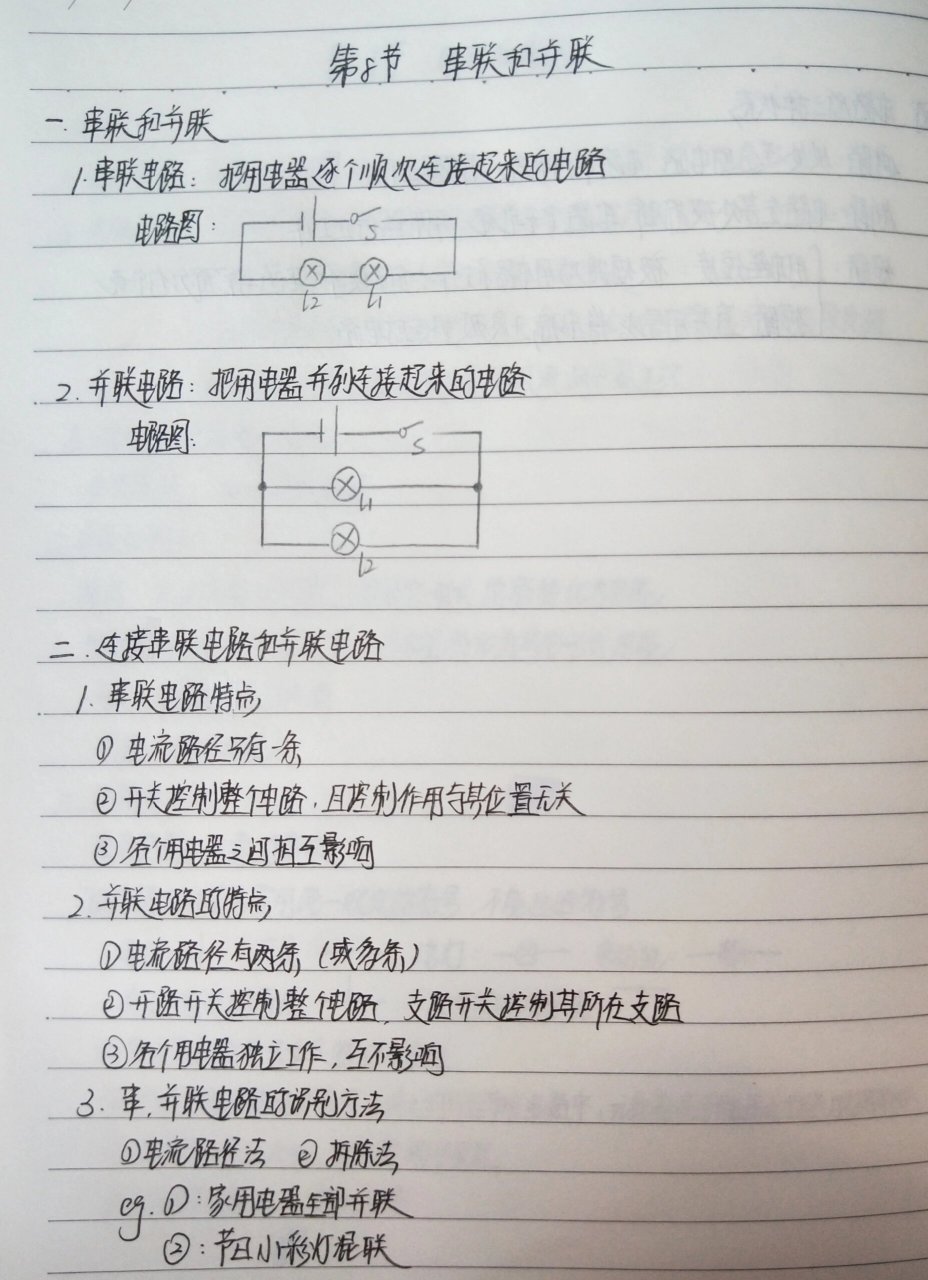 第8节 串联和并联
一.串联和并联
1.串联电路：把用电器逐个顺次连接起来的电路
电路图：
S
L2 L1
2.并联电路：把用电器并列连接起来的电路
电路图：
S
L1
L2
二.连接串联电路和并联电路
1.串联电路特点
①电流路径只有一条
②开关控制整个电路，且控制作用与其位置无关
③各个用电器之间相互影响
2.并联电路的特点
①电流路径有两条（或多条）
②开路开关控制整个电路，支路开关控制其所在支路
③各个用电器独立工作，互不影响
3.串，并联电路的识别方法
①电流路径法 ②拆除法
eg.①：家用电器全部并联
②：节日小彩灯混联